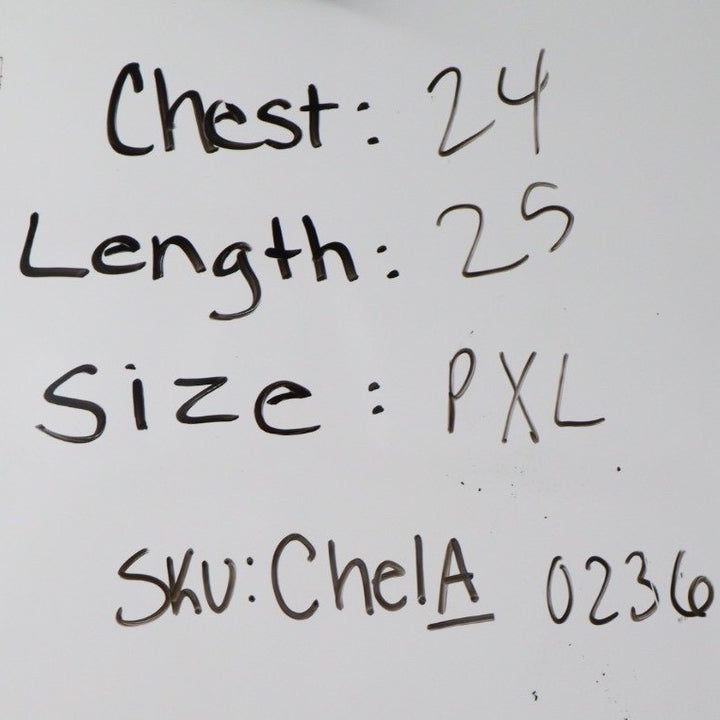 Chest: 24
Length: 25
Size: PXL
SKU: ChelA 0236